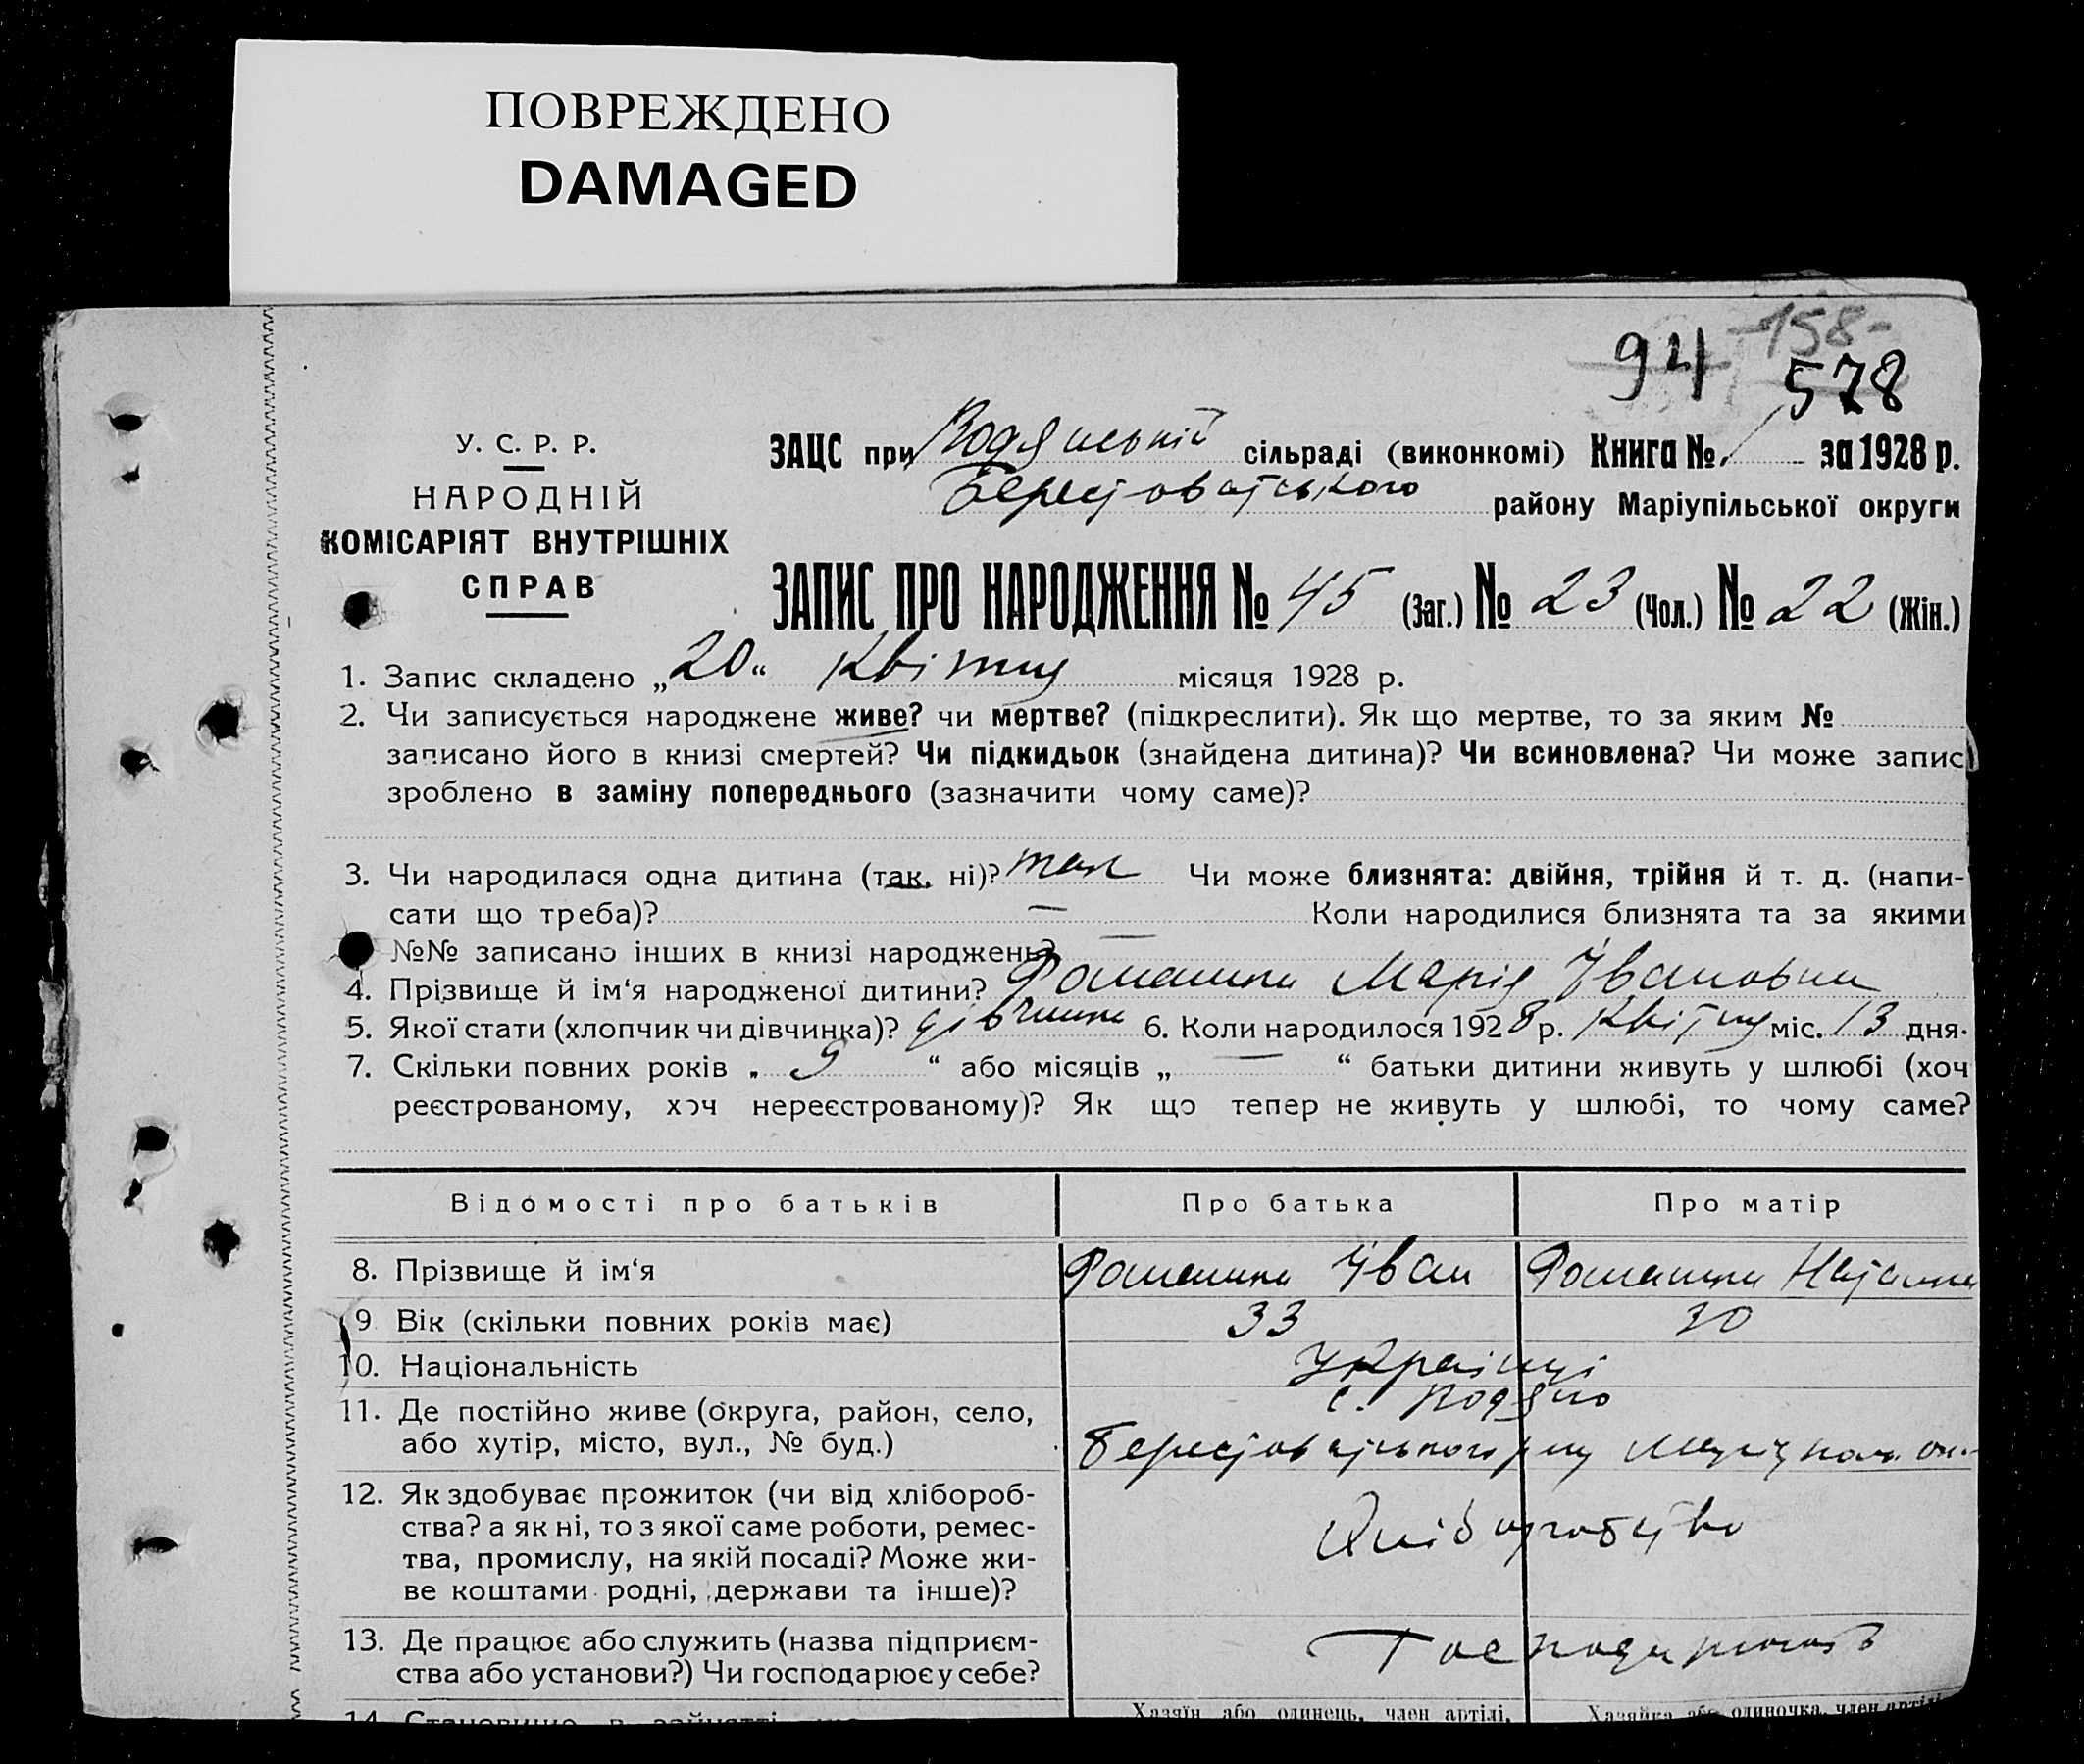 ПОВРЕЖДЕНО
DAMAGED
-158-
94 578
У. С. Р. Р.
НАРОДНІЙ
КОМІСАРІЯТ ВНУТРІШНІХ
СПРАВ
ЗАЦС при Водянській сільраді (виконкомі) Книга № 1 за 1928 р.
Берестоватського району Маріупільської округи
ЗАПИС ПРО НАРОДЖЕННЯ № 45 (Заг.) № 23 (Чол.) № 22 (Жін.)
1. Запис складено „20“ Квітня місяця 1928 р.
2. Чи записується народжене живе? чи мертве? (підкреслити). Як що мертве, то за яким №
записано його в книзі смертей? Чи підкидьок (знайдена дитина)? Чи всиновлена? Чи може запис
зроблено в заміну попереднього (зазначити чому саме)?
3. Чи народилася одна дитина (так, ні)? так Чи може близнята: двійня, трійня й т. д. (напи-
сати що треба)? — Коли народилися близнята та за якими
№№ записано інших в книзі народжень? —
4. Прізвище й ім‘я народженої дитини? Марія Івановна
5. Якої стати (хлопчик чи дівчинка)? дівчинка 6. Коли народилося 1928 р. Квітня міс. 13 дня.
7. Скільки повних років „ 9 “ або місяців „ — “ батьки дитини живуть у шлюбі (хоч
реєстрованому, хоч нереєстрованому)? Як що тепер не живуть у шлюбі, то чому саме?
Відомості про батьків Про батька Про матір
8. Прізвище й ім‘я Іван
9. Вік (скільки повних років має) 33 30
10. Національність Українці
11. Де постійно живе (округа, район, село, с. Водяно
або хутір, місто, вул., № буд.) Берестоватського р-ну Маріупол. ок.
12. Як здобуває прожиток (чи від хлібороб-
ства? а як ні, то з якої саме роботи, ремес- Хліборобство
тва, промислу, на якій посаді? Може жи-
ве коштами родні, держави та інше)?
13. Де працює або служить (назва підприєм-
ства або установи?) Чи господарює у себе? Господарюють
14. Становище в занятті
Хазяїн або одинець, член артілі, Хазяйка або одиночка, член артілі